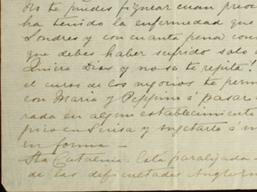 No te puedes figurar cuan preoc
ha tenido la enfermedad que
Londres y con cuanta pena con
que debes haber sufrido solo
Quiera Dios y no se te repita!
el curso de los negocios te perm
con Maria y Pepefino á pasar
rada en algun establecimiento
prio en Suiza y sugetarlo á
en forma —
Sta Catalina. Está paralizada
de las dificultades Angl